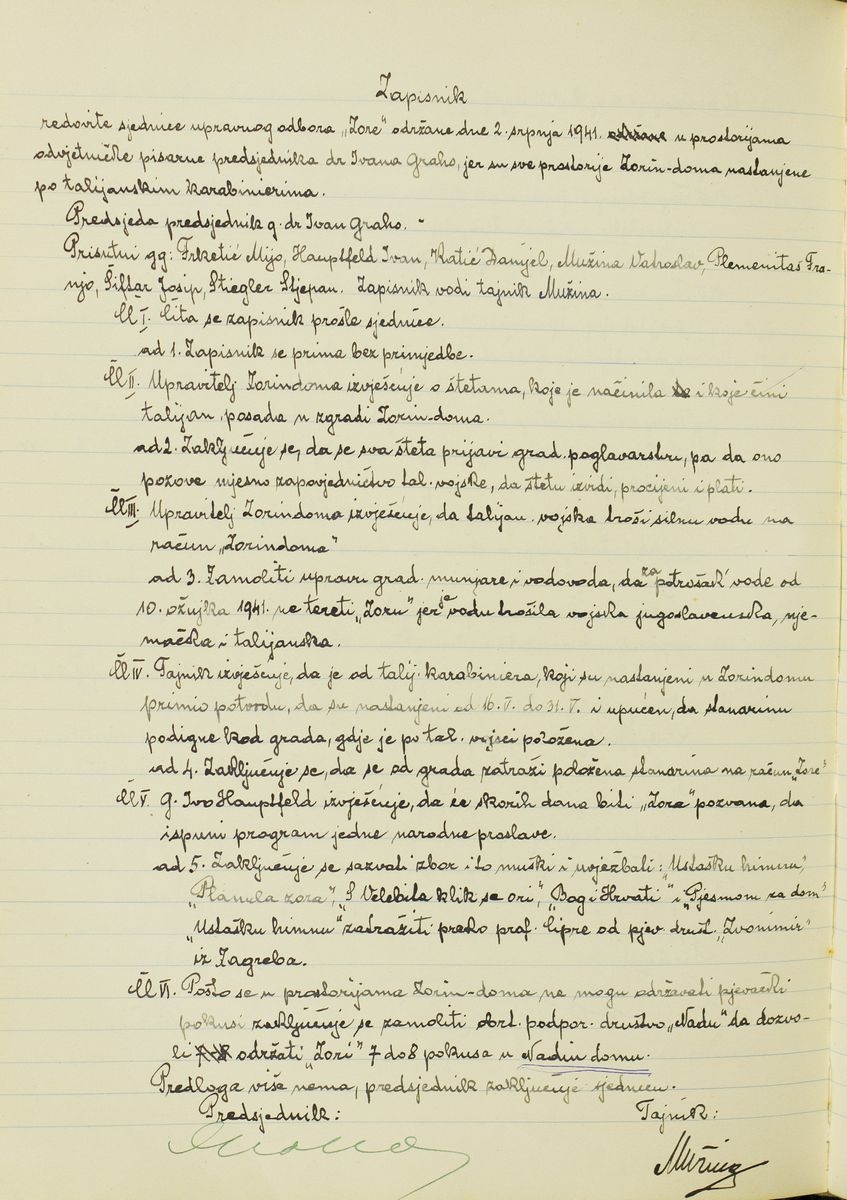 Zapisnik
redovite sjednice upravnog odbora "Zore" održane dne 2. srpnja 1941. održane u prostorijama
odvjetničke pisarne predsjednika dr Ivana Graho, jer su sve prostorije Zorin-doma nastanjene
po talijanskim karabinierima.
Predsjeda predsjednik g. dr Ivan Graho. -
Prisutni gg: Frketić Mijo, Hauptfeld Ivan, Katić Danijel, Mužina Vatroslav, Plemenitaš Fra-
njo, Šiftar Josip, Stiegler Stjepan. Zapisnik vodi tajnik Mužina.
Čl I. Čita se zapisnik prošle sjednice.
ad 1. Zapisnik se prima bez primjedbe.
Čl II. Upravitelj Zorindoma izvješćuje o štetama, koje je načinila i koje čini
talijan. posada u zgradi Zorin-doma.
ad 2. Zaključuje se, da se sva šteta prijavi grad. poglavarstvu, pa da ono
pozove mjesno zapovjedničtvo tal. vojske, da štetu izvidi, procijeni i plati.
Čl III. Upravitelj Zorindoma izvješćuje, da talijan. vojska troši silnu vodu na
račun "Zorindoma"
ad 3. Zamoliti upravu grad. munjare i vodovoda, da za potrošak vode od
10. ožujka 1941. ne tereti "Zoru" jer je vodu trošila vojska jugoslavenska, nje-
mačka i talijanska.
Čl IV. Tajnik izvješćuje, da je od talij. karabiniera, koji su nastanjeni u Zorindomu
primio potvrdu, da su nastanjeni od 16. V. do 31. V. i upućen, da stanarinu
podigne kod grada, gdje je po tal. vojsci položena.
ad 4. Zaključuje se, da se od grada zatraži položena stanarina na račun "Zore"
Čl V. G. Ivo Hauptfeld izvješćuje, da će skorih dana biti "Zora" pozvana, da
ispuni program jedne narodne proslave.
ad 5. Zaključuje se sazvati zbor i to muški i uvježbati: "Ustašku himnu",
"Planula zora", "S Velebita klik se ori", "Bog i Hrvati" i "Pjesmom za dom"
"Ustašku himnu" zatražiti preko prof. Cipre od pjev. družt. "Zvonimir"
iz Zagreba.
Čl VI. Pošto se u prostorijama Zorin-doma ne mogu održavati pjevački
pokusi zaključuje se zamoliti obrt. podpor. društvo "Nadu" da dozvo-
li održati "Zori" 7 do 8 pokusa u Nadin domu.
Predloga više nema, predsjednik zaključuje sjednicu.
Predsjednik: Tajnik:
Mužina